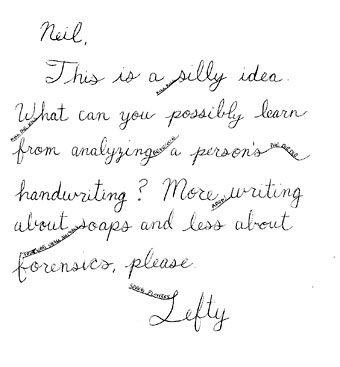 Neil,
This is a silly idea.
What can you possibly learn
from analyzing a person's
handwriting? More writing
about soaps and less about
forensics, please.
Lefty